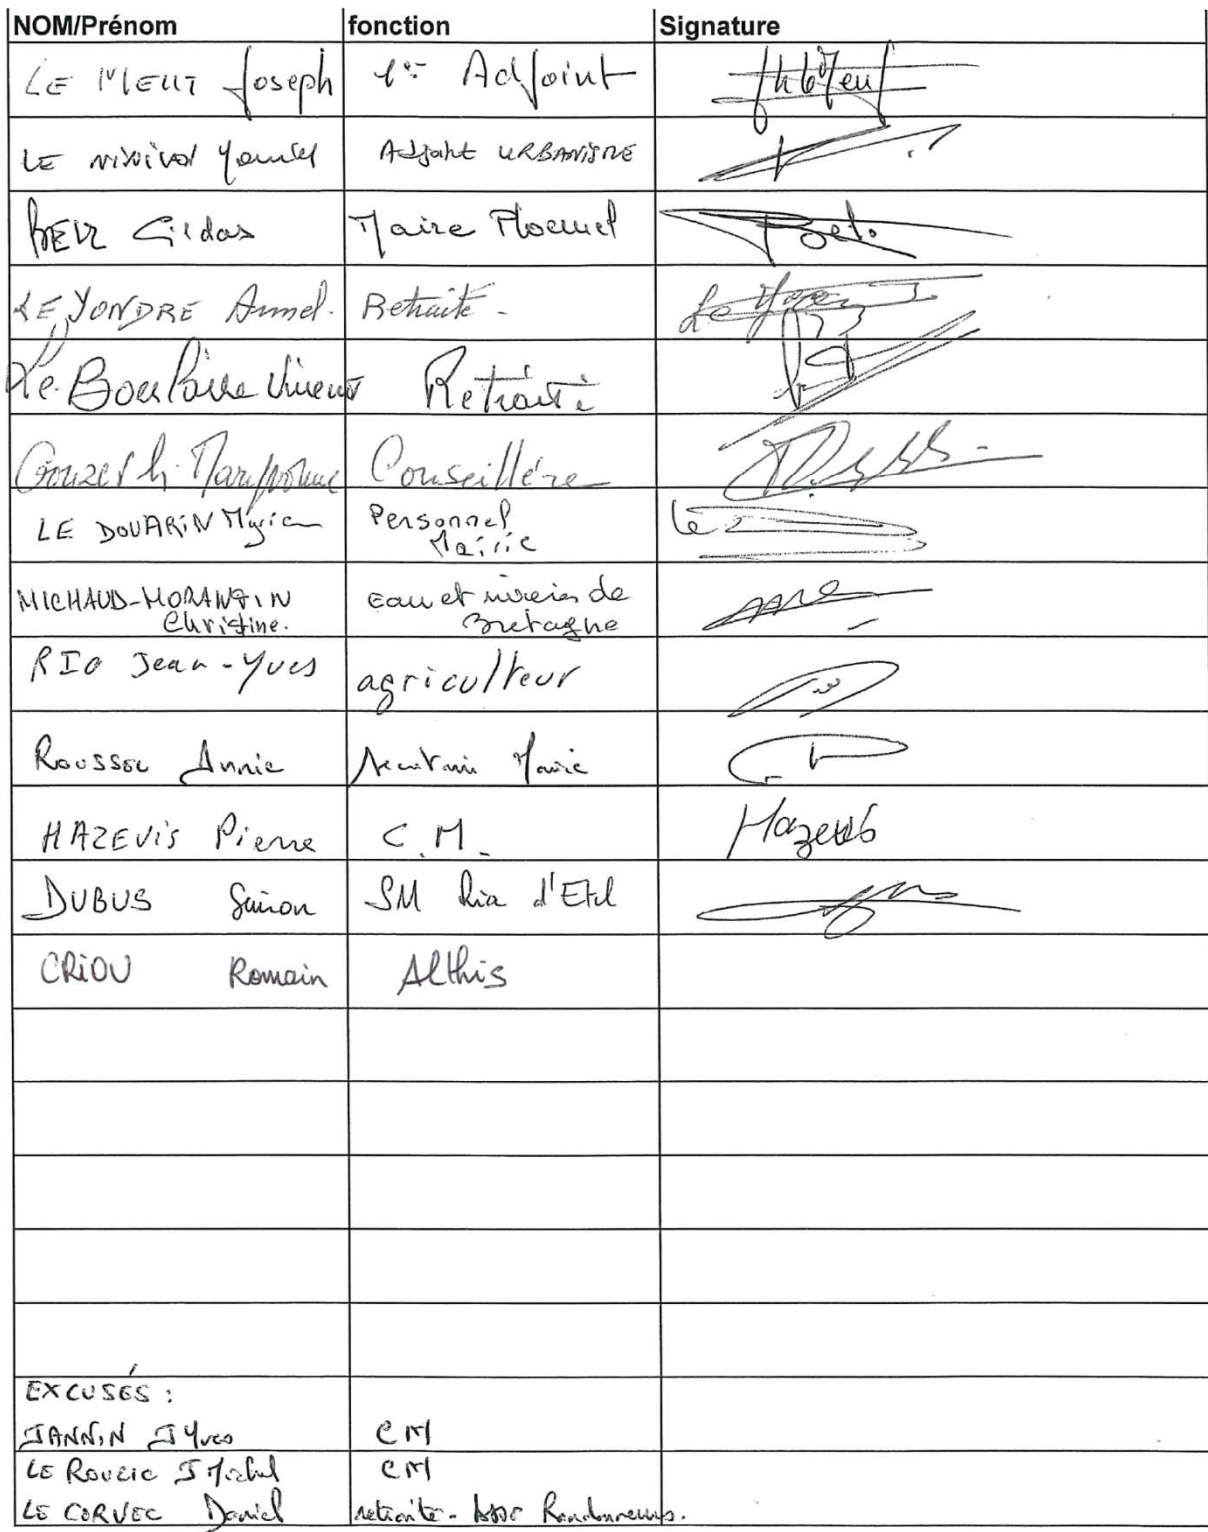 NOM/Prénom fonction Signature
LE MEUT Joseph 1er Adjoint
LE Yannick Adjoint URBANISME
BELZ Gildas Maire Ploemel
LE YONDRE Armel. Retraité -
Le Boulaire Vincent Retraité
Conseillère
LE DOUARIN Personnel
Mairie
MICHAUD-MORANTIN Eau et rivières de
Christine. Bretagne
RIO Jean-Yves agriculteur
ROUSSEL Annie Mairie
HAZEVIS Pierre C.M. Hazevis
DUBUS Simon SM Ria d'Etel
CRIOU Romain Althis
EXCUSÉS :
JANNIN JYves CM
LE ROUZIC J Michel CM
LE CORVEC Daniel retraité - Asso Randonneurs.